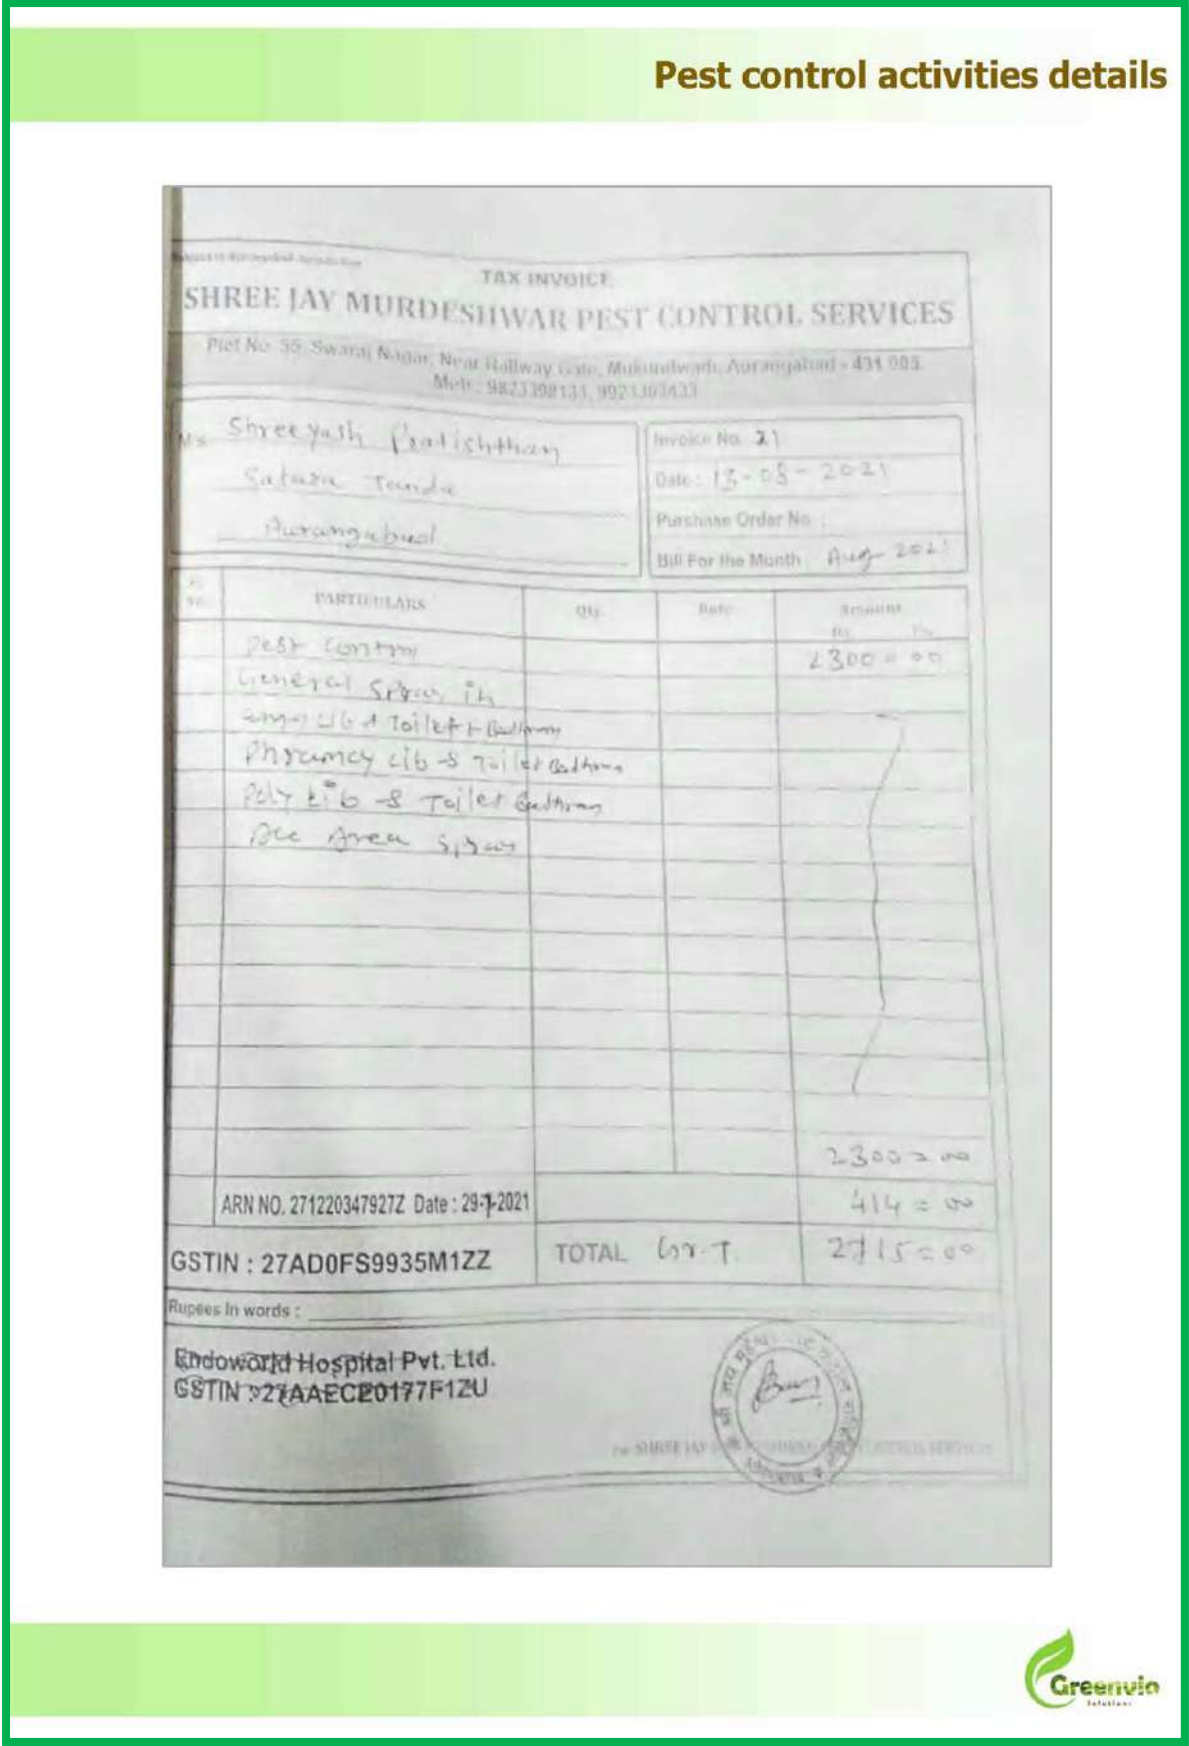 Pest control activities details
TAX INVOICE
SHREE JAY MURDESHWAR PEST CONTROL SERVICES
Plot No. 55, Swaraj Nagar, Near Railway Gate, Mukundwadi, Aurangabad - 431 005.
Mob.: 9823398131,
M/s Shreeyash Pratishthan
Satara Tanda
Aurangabad
Invoice No. 21
Date : 13-08-2021
Purchase Order No. :
Bill For the Month Aug 2021
PARTICULARS Qty. Rate Amount
Rs. Ps.
Pest Control 2300=00
General Spray in
Lib & Toilet + Bathroom
Phramcy Lib & Toilet Bathroom
Poly Lib & Toilet Bathroom
Area Spray
2300=00
ARN NO. 271220347927Z Date : 29-7-2021 414=00
GSTIN : 27AD0FS9935M1ZZ TOTAL 2715=00
Rupees In words :
Endoworld Hospital Pvt. Ltd.
GSTIN : 27AAECE0177F1ZU
For SHREE JAY CONTROL SERVICES
Greenvio
Solutions